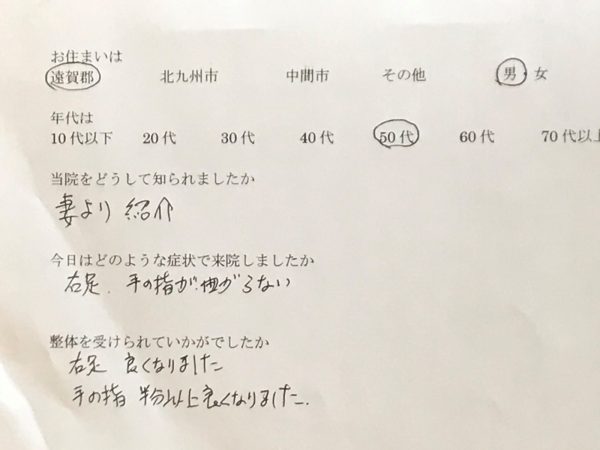 お住まいは
遠賀郡 北九州市 中間市 その他 男 女
年代は
10代以下 20代 30代 40代 50代 60代 70代以上
当院をどうして知られましたか
妻より 紹介
今日はどのような症状で来院しましたか
右足、手の指が曲がらない
整体を受けられていかがでしたか
右足 良くなりました
手の指 半分以上良くなりました.